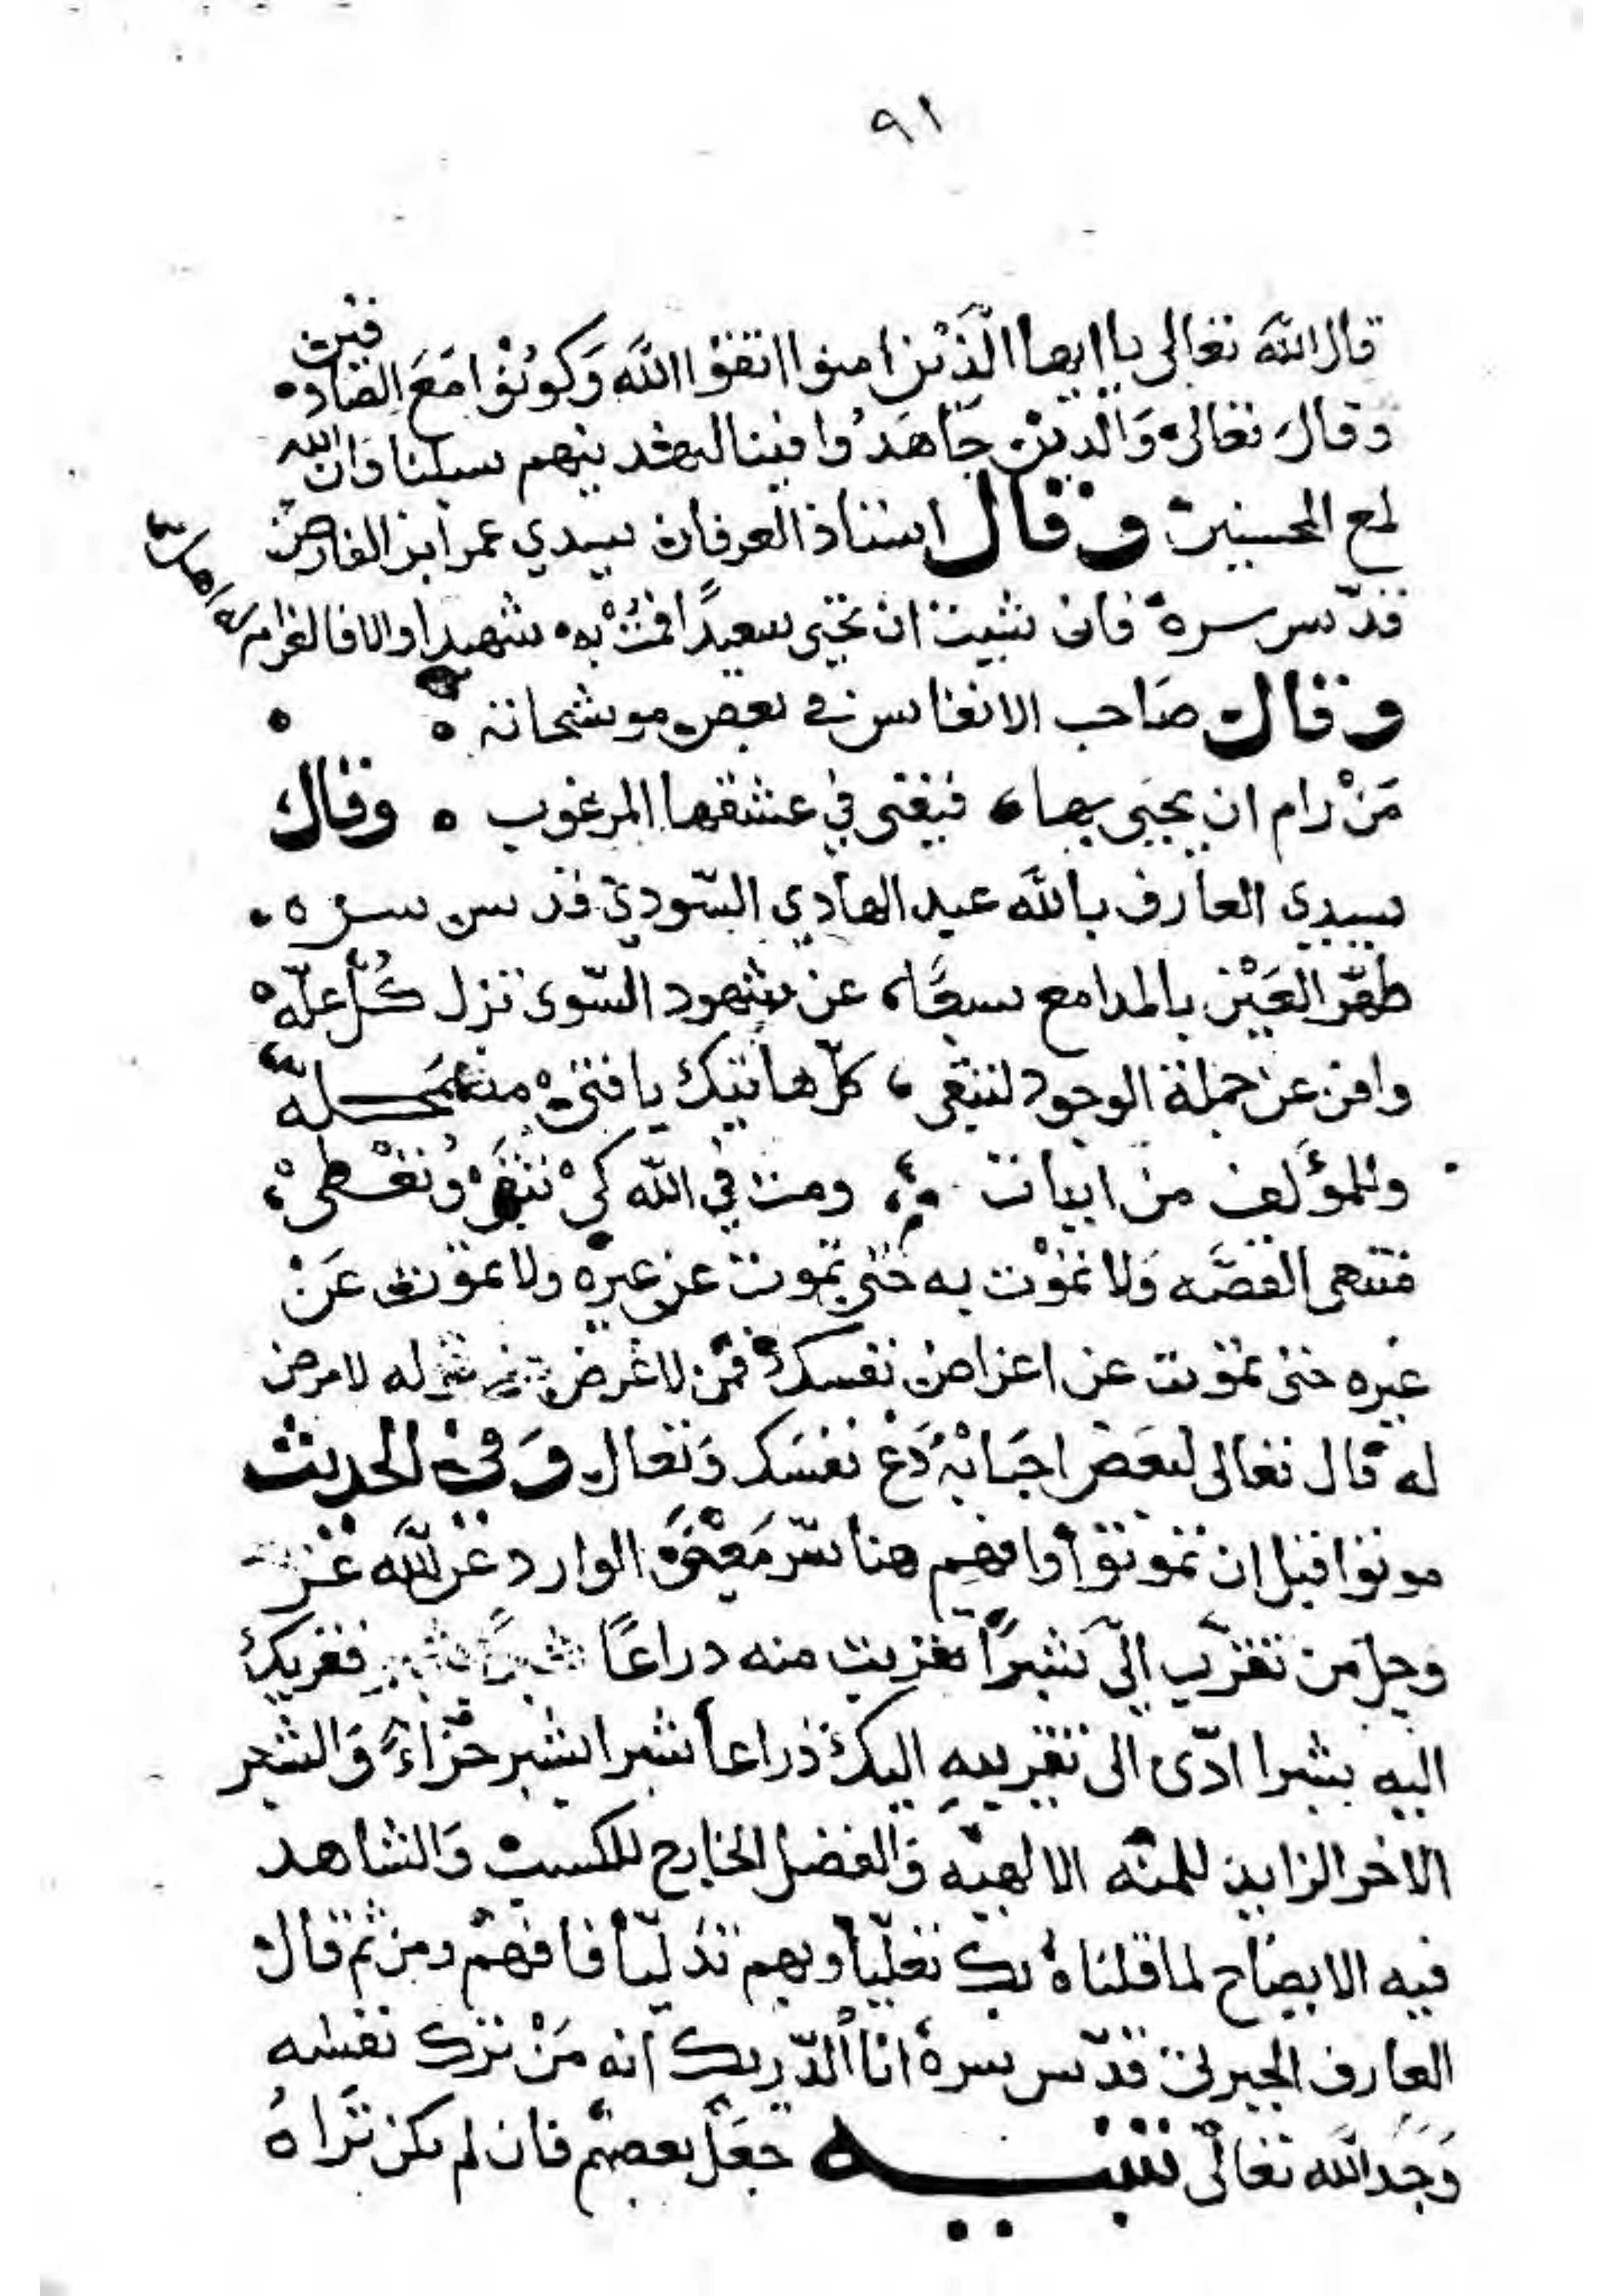 ٩١
قال الله تعالى يا ايها الَّذين امنوا اتقوا الله وَكونُوْا مَعَ الصَّادقين
وقال تعالى وَالَّذين جَاهَدُوا فينا لنهدينهم سبلنا وَان الله
لمع المحسنين وقال استاذ العرفان سيدي عمر ابن الفارض
قدّس سره فان شيت ان تحيى سعيدًا فمُتْ به شهيدا والا فالغرام له اهل
وقال صَاحب الانفاس في بعض موشحاته
مَنْ رام ان يحيَى بها، فيفنى في عشقها المرغوب ه وقال
سيدي العارف بالله عبد الهادي السّودي قدس سره
طهّر العَيْن بالمدامع سبعًا، عن شهود السّوى تزل كُلّ علّه
وافن عن جملة الوجود لتبقى، كلّ هاتيك يا فتى مضمحله
وللمؤلف من ابيات ومت في الله كيْ تبقى وُتعْطى
فتنهى القصَّه وَلا تموْت به حتى تموت عن غيره ولا تموت عَنْ
غيره حتى تموت عن اغراض نفسك فمَن لا غرض له لا مرض
له قال تعالى لبعَض احبَابهُ دَعْ نفسَك وَتعال وَفي الحديث
موتوا قبل ان تموتوا وافهم هنا سّر مَعْنَى الوارد عن الله عَز
وجل مَن تقرّب الىّ شبرًا تقربت منه دراعًا شبرًا بشبر فقربك
اليه بشبرا ادّى الى تقريبهِ اليك ذراعا شبرا بشبر جزاءً وَالشبر
الاخر الزايد للمنّه الالهيّه وَالفضل الخارج للكسب وَالشاهد
فيه الايضاح لما قلناه بك تعليّا وبهم تدليّا فافهم ومن ثم قال
العارف الجبرتى قدّس سره انا الدّريك انه مَنْ ترك نفسَه
وَجَد الله تعالى تنبيه جعَل بعضهم فان لم تكن تَراهُ